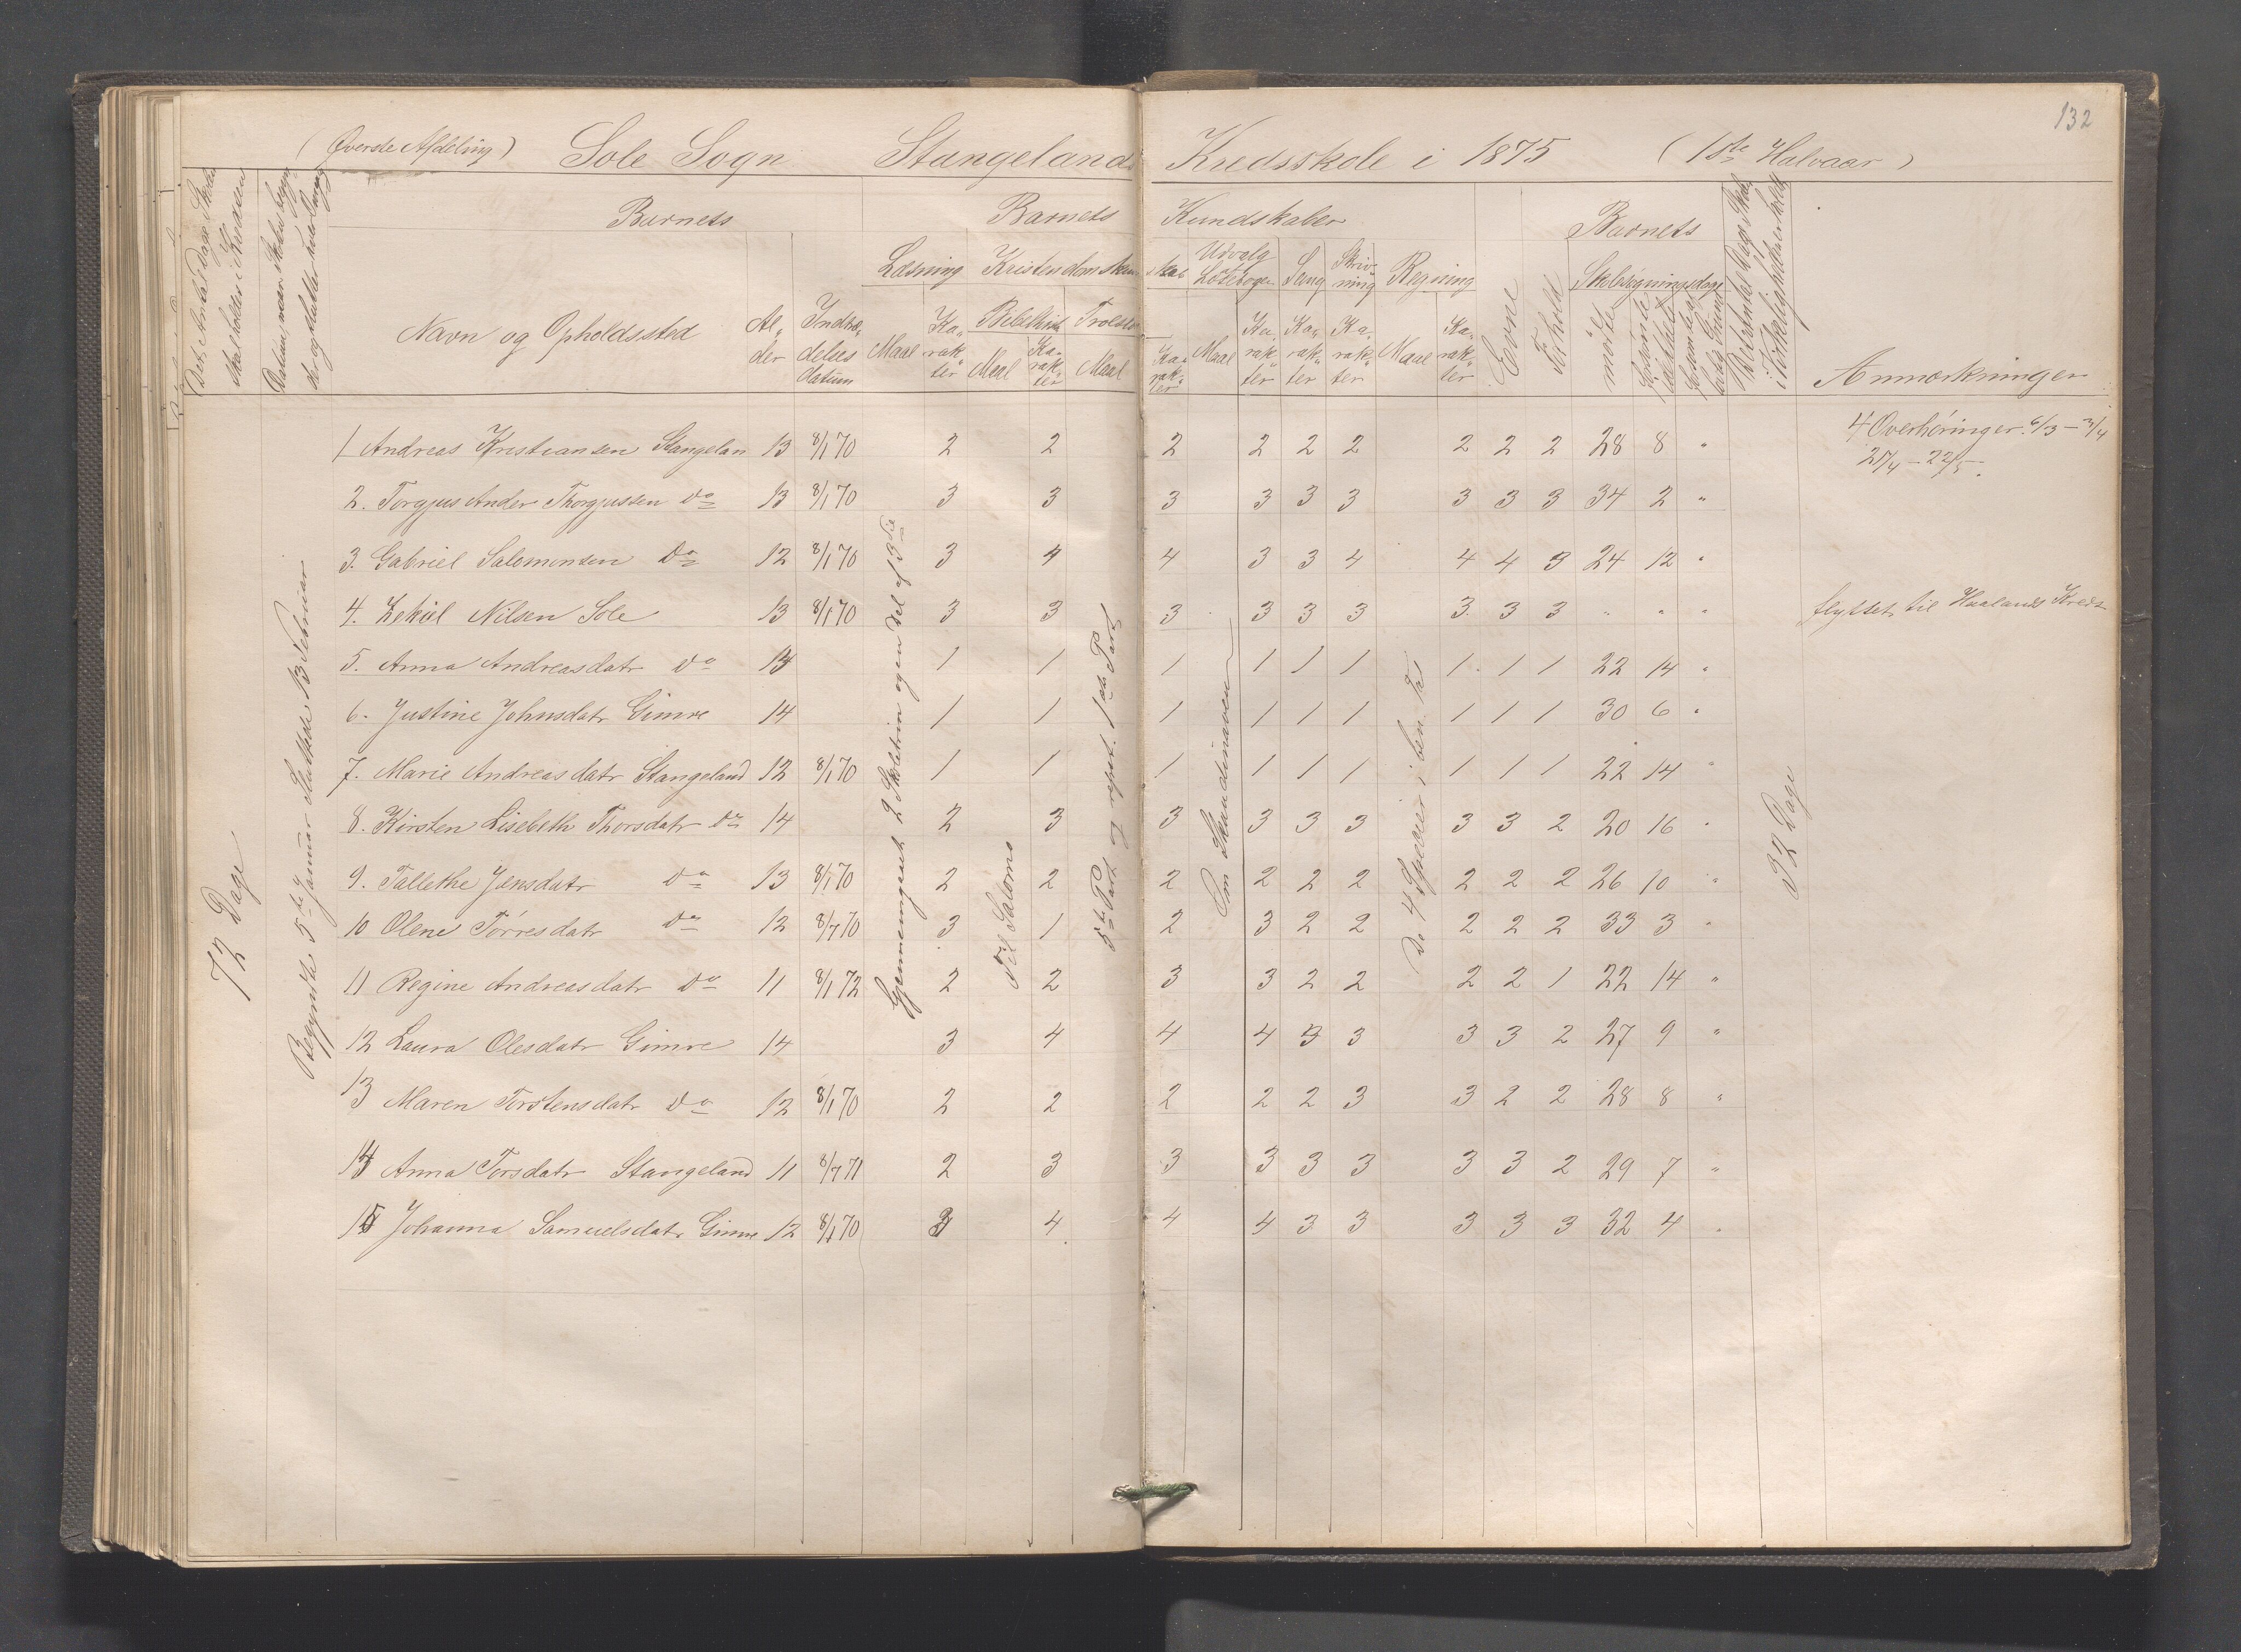 132
( Øverste Afdeling ) Sole Sogn Stangelands Kredsskole i 1875 ( 1ste Halvaar )
Barnets Barnets Kundskaber Barnets
Læsning Kristendomskundskab Udvalg Læsebogen Sang Skrivning Regning Evne Forhold Skolesøgningsdage
Navn og Opholdssted Alder Indtrædelsesdatum Maal Karakter Maal Karakter Maal Karakter Maal Karakter Karakter Karakter Maal Karakter mødte Anmærkninger
72 Dage
Begyndte 5te Januar Sluttede 13 Februar
til Saloms
5te Part og repet. 1ste Part
Om Skandinaven
32 Dage
1 Andreas Kristiansen Stangelan 13 8/1 70 2 2 2 2 2 2 2 2 2 28 8 " 4 Overhøringer. 6/3 – 3/4
21/4 – 22/5.
2. Torgjus Ander Thorgjussen do 13 8/1 70 3 3 3 3 3 3 3 3 3 34 2 "
3. Gabriel Salomonsen do 12 8/1 70 3 4 4 3 3 4 4 4 3 24 12 "
4. Zekiel Nilsen Sole 13 8/1 70 3 3 3 3 3 3 3 3 3 " " " flyttet til Haalands Kreds
5. Anna Andreasdatr do 14 1 1 1 1 1 1 1 1 1 22 14 "
6. Justine Johnsdatr Gimre 14 1 1 1 1 1 1 1 1 1 30 6 "
7. Marie Andreasdatr Stangeland 12 8/1 70 1 1 1 1 1 1 1 1 1 22 14 "
8. Kirsten Lisebeth Thorsdatr do 14 2 3 3 3 3 3 3 3 2 20 16 "
9. Tallethe Jensdatr do 13 8/1 70 2 2 2 2 2 2 2 2 2 26 10 "
10 Olene Tørresdatr do 12 8/7 70 3 1 2 3 2 2 2 2 2 33 3 "
11 Regine Andreasdatr do 11 8/1 72 2 2 3 3 2 2 2 2 1 22 14 "
12 Laura Olesdatr Gimre 14 3 4 4 4 3 3 3 3 2 27 9 "
13 Maren Torstensdatr do 12 8/1 70 2 2 2 2 2 3 3 2 2 28 8 "
14 Anna Torsdatr Stangeland 11 8/7 71 2 3 3 3 3 3 3 3 2 29 7 "
15 Johanna Samuelsdatr Gimre 12 8/1 70 3 4 4 4 3 3 3 3 3 32 4 "